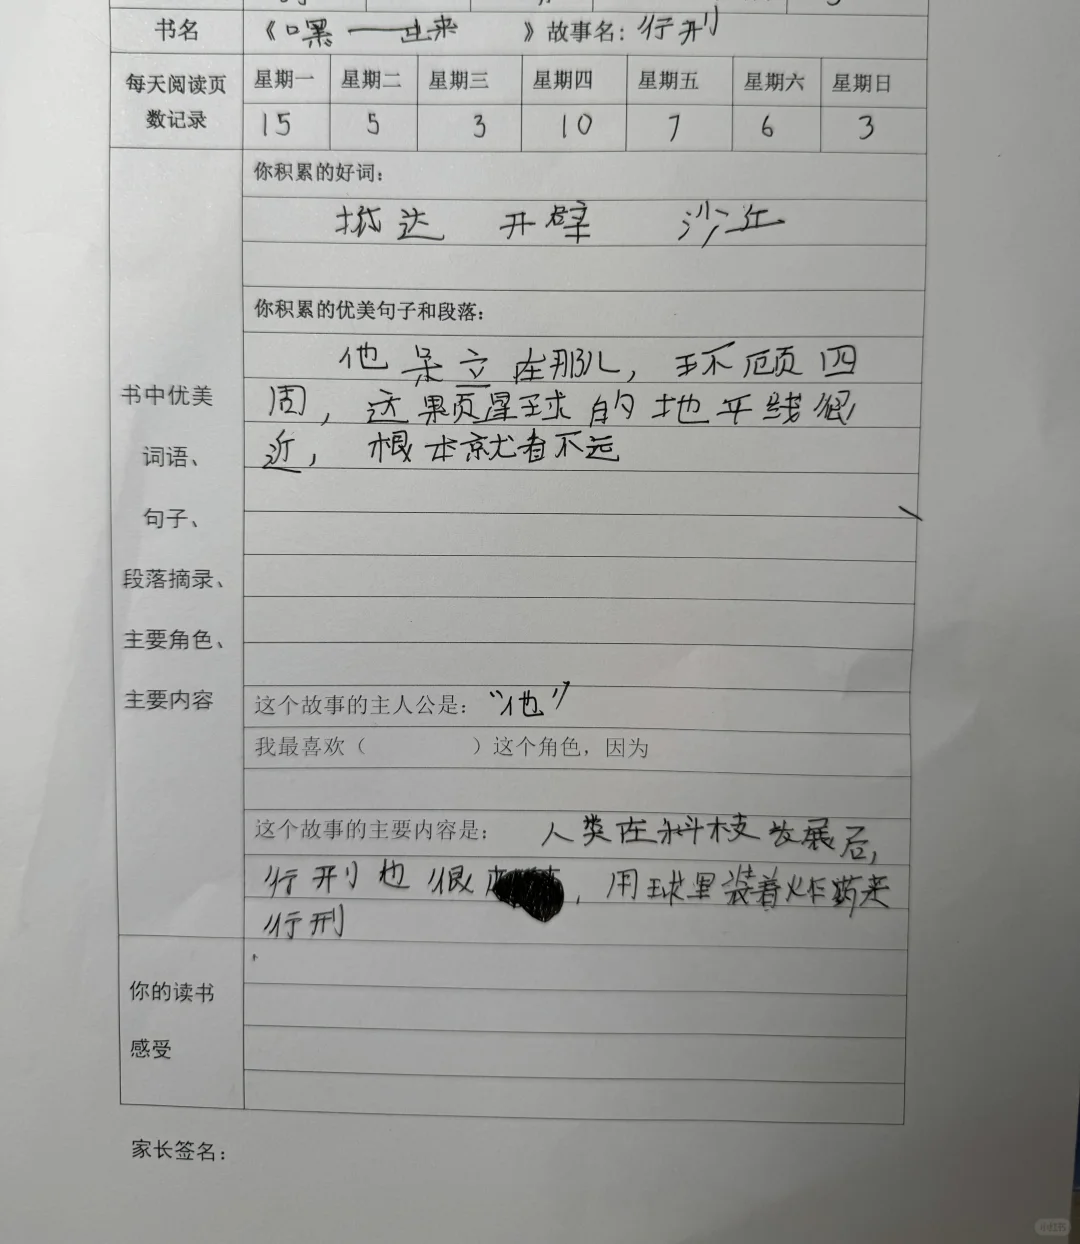 书名 《嘿 ——出来 》故事名：行刑
每天阅读页数记录 星期一 星期二 星期三 星期四 星期五 星期六 星期日
15 5 3 10 7 6 3
你积累的好词：
抵达 开壁 沙丘
你积累的优美句子和段落：
他呆立在那儿，环顾四
周，这果页星球的地平线很
近，根本就看不远
书中优美
词语、
句子、
段落摘录、
主要角色、
主要内容
这个故事的主人公是：“他”
我最喜欢（ ）这个角色，因为
这个故事的主要内容是： 人类在科技发展后，
行刑也很，用球里装着炸药来
行刑
你的读书
感受
家长签名：
小红书